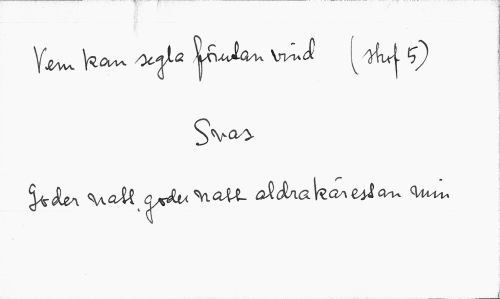 Vem kan segla förutan vind (strof 5)
Svar
Goder natt, goder natt aldrakärestan min